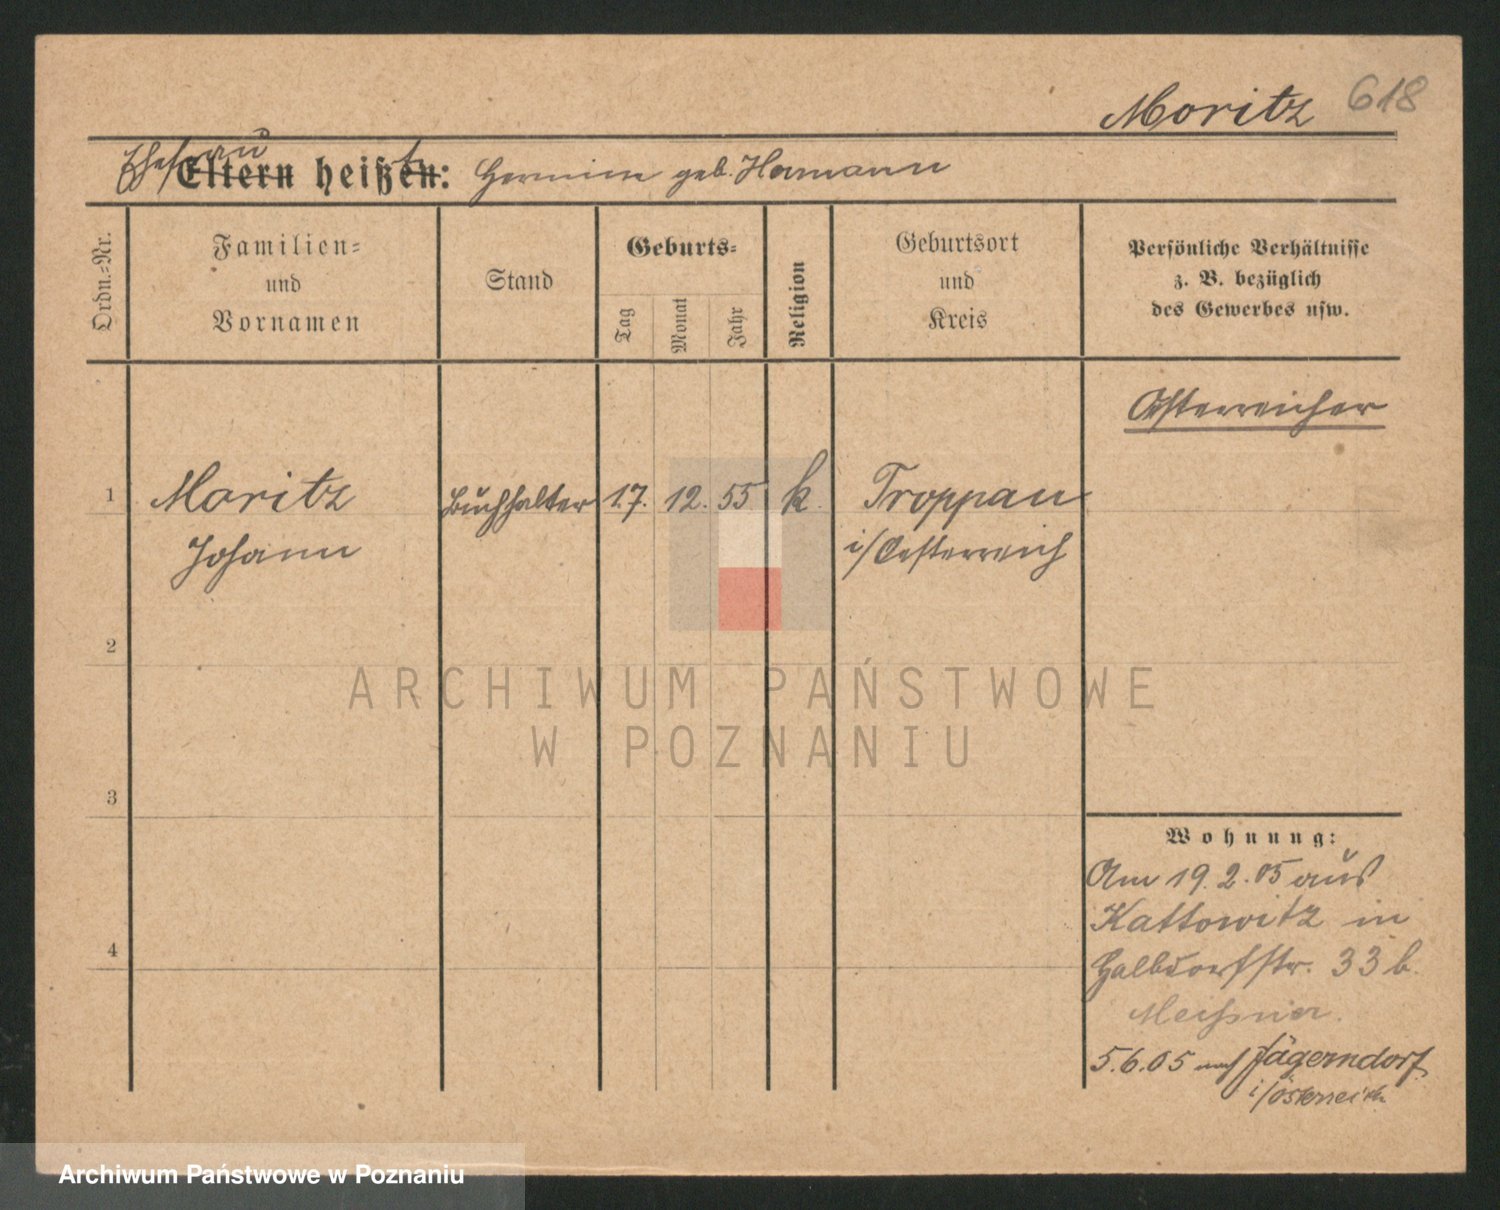 Moritz 618
Ehefrau Eltern heißen: Hermine geb. Hamann
Ordn.=Nr.
Familien=
und
Vornamen
Stand
Geburts=
Tag
Monat
Jahr
Religion
Geburtsort
und
Kreis
Persönliche Verhältnisse
z. B. bezüglich
des Gewerbes usw.
Oesterreicher
1 Moritz Buchhalter 17. 12. 55 k. Troppau
Johann i/Oesterreich
2
ARCHIWUM PAŃSTWOWE
W POZNANIU
3
Wohnung:
Am 19.2.05 aus
Kattowitz in
Halbdorfstr. 33 b.
4
Meißner.
5.6.05 nach Jägerndorf
i/Österreich
Archiwum Państwowe w Poznaniu